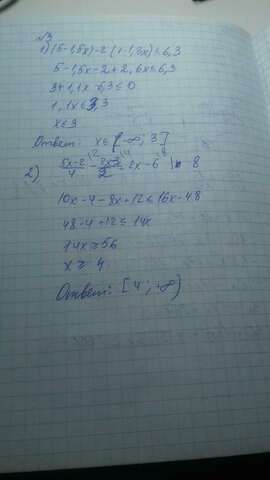 №3
1) (5-1,5x)-2(1-1,3x)≤6,3
5-1,5x-2+2,6x≤6,3
3+1,1x-6,3≤0
1,1x≤3,3
x≤3
Ответ: x∈[-∞; 3]
2) (5x-2)/4 - (2x-3)/2 ≤ 2x-6 |· 8
10x-4-8x+12≤16x-48
48-4+12≤14x
14x≥56
x≥4
Ответ: [4; +∞)